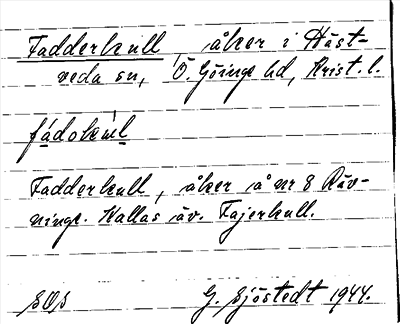 Fadderkull, åker i Häst-
veda sn, Ö. Göinge hd, Krist. l.
fàdokúl
Fadderkull, åker å nr 8 Räv-
ninge. Kallas äv. Fajerkull.
SOS G. Sjöstedt 1944.